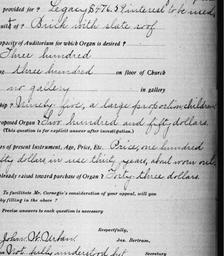 provided for? Legacy $776.59 interest to be used
built of? Brick with slate roof
apacity of Auditorium for which Organ is desired?
Three hundred
three hundred on floor of Church
no gallery in gallery
ship? Ninety five, a large proportion children
proposed Organ? Two hundred and fifty dollars.
(This question is for explicit answer after investigation.)
s of present Instrument, Age, Price, Etc. Price, one hundred
fty dollars in use thirty years, about worn out
already raised toward purchase of Organ? Forty-three dollars.
To facilitate Mr. Carnegie's consideration of your appeal, will you
by filling in the above?
Precise answers to each question is necessary
Respectfully,
John W. Urban Jas. Bertram,
Not fully understood but Secretary